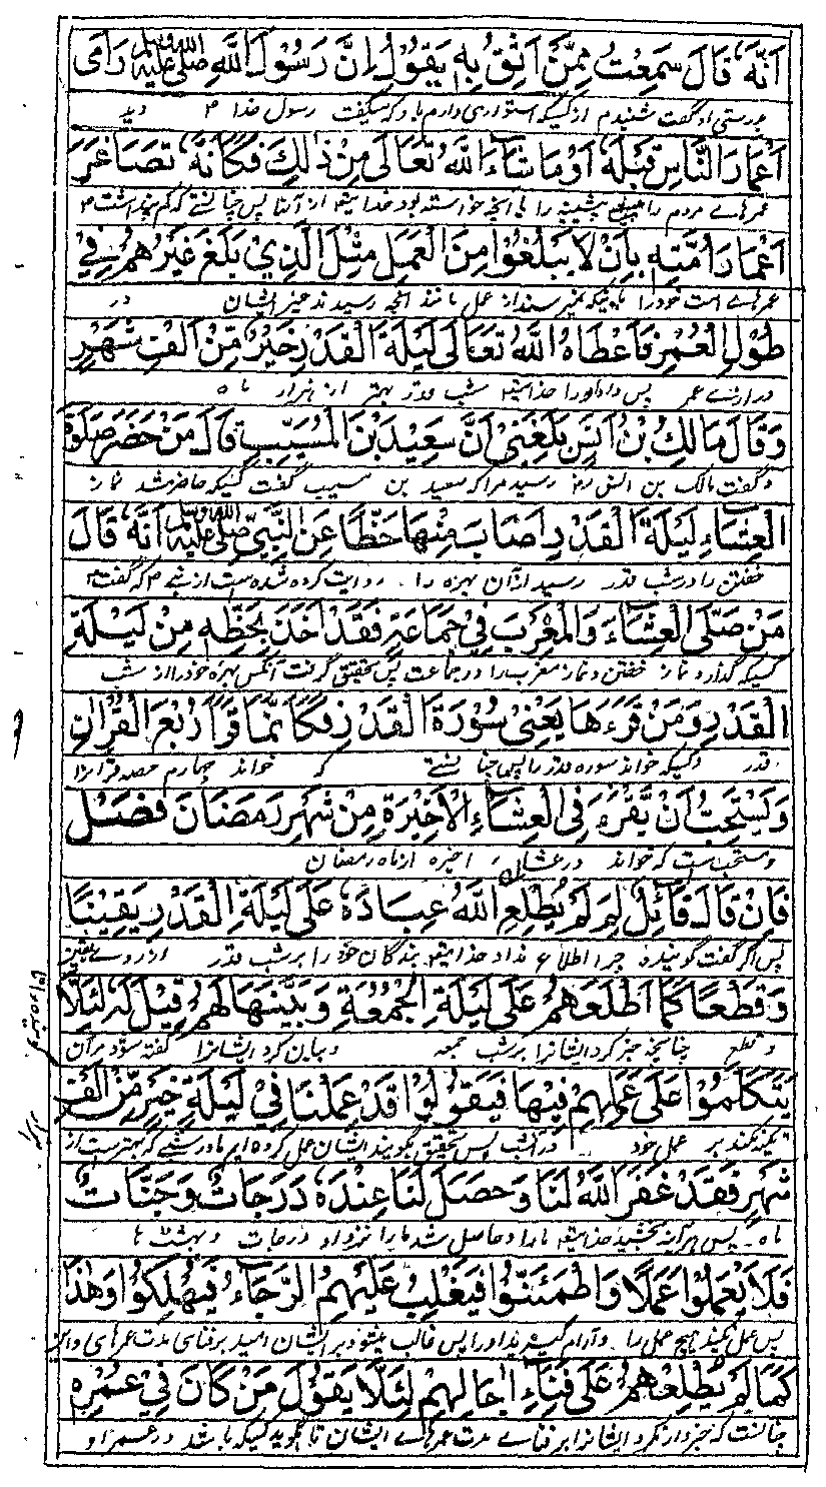 اَنَّهٗ قَالَ سَمِعْتُ مِمَّنْ اَثِقُ بِهٖ يَقُوْلُ اِنَّ رَسُوْلَ اللّٰهِ صلى الله عليه وسلم رَاٰى
بدرستی او گفت شنیدم از کسیکه استواری دارم باو که میگفت رسول خدا ۳ دید
اَعْمَارَ النَّاسِ قَبْلَهٗ اَوْ مَا شَآءَ اللّٰهُ تَعَالٰى مِنْ ذٰلِكَ فَكَاَنَّهٗ تَصَاغَرَ
عمرهاے مردم پیشینه را یا آنچه خواسته بود خدایتعا از آن پس چنانستے که کم
اَعْمَارَ اُمَّتِهٖ بِاَنْ لَا يَبْلُغُوْا مِنَ الْعَمَلِ مِثْلَ الَّذِيْ بَلَغَ غَيْرُهُمْ فِيْ
عمرهاے امت خود را باینکه نمیرسند از عمل مانند آنچه رسیدند غیر ایشان در
طُوْلِ الْعُمُرِ فَاَعْطَاهُ اللّٰهُ تَعَالٰى لَيْلَةَ الْقَدْرِ خَيْرٌ مِّنْ اَلْفِ شَهْرٍ
درازے عمر پس داد او را خدایتعا شب قدر بهتر از هزار ماه
وَقَالَ مَالِكُ بْنُ اَنَسٍ بَلَغَنِيْ اَنَّ سَعِيْدَ بْنَ الْمُسَيِّبِ قَالَ مَنْ حَضَرَ صَلٰوةَ
و گفت مالک بن انس رض رسید مرا که سعید بن مسیب گفت کسیکه حاضر شد نماز
الْعِشَآءِ لَيْلَةَ الْقَدْرِ اَصَابَ مِنْهَا حَظًّا عَنِ النَّبِيِّ صلى الله عليه وسلم اَنَّهٗ قَالَ
خفتن را در شب قدر رسید از آن بهره را روایت کرده شده است از نبے ۳ که گفت
مَنْ صَلَّى الْعِشَآءَ وَالْمَغْرِبَ فِيْ جَمَاعَةٍ فَقَدْ اَخَذَ بِحَظِّهٖ مِنْ لَيْلَةِ
کسیکه گذارد نماز خفتن و نماز مغرب را در جماعت پس بتحقیق گرفت آنکس بهره خود را از شب
الْقَدْرِ وَمَنْ قَرَءَهَا يَعْنِيْ سُوْرَةَ الْقَدْرِ فَكَاَنَّمَا قَرَاَ رُبْعَ الْقُرْاٰنِ
قدر و کسیکه خواند سوره قدر را پس چنانستے که خواند چهارم حصه قرآن را
وَيُسْتَحَبُّ اَنْ يَّقْرَءَ فِي الْعِشَآءِ الْاَخِيْرَةِ مِنْ شَهْرِ رَمَضَانَ فَصْلٌ
و مستحب ست که خواند در عشاے اخیره از ماه رمضان
فَاِنْ قَالَ قَآئِلٌ لِمَ لَمْ يُطْلِعِ اللّٰهُ عِبَادَهٗ عَلٰى لَيْلَةِ الْقَدْرِ يَقِيْنًا
پس اگر گفت گوینده چرا اطلاع نداد خدایتعا بندگان خود را بر شب قدر از روے یقین
وَقَطْعًا كَمَا اَطْلَعَهُمْ عَلٰى لَيْلَةِ الْجُمُعَةِ وَبَيَّنَهَا لَهُمْ قِيْلَ لَهٗ لِئَلَّا
و قطع چنانچه خبر کرد ایشانرا بر شب جمعه و بیان کرد ایشانرا گفته شود برآن
يَتَّكِلُوْا عَلٰى عَمَلِهِمْ فِيْهَا فَيَقُوْلُوْا قَدْ عَمِلْنَا فِيْ لَيْلَةٍ خَيْرٍ مِّنْ اَلْفِ
تکیه نکنند بر عمل خود در آن شب پس بتحقیق گویند ایشان عمل کرده ایم ما در شبے که بهتر ست از
شَهْرٍ فَقَدْ غَفَرَ اللّٰهُ لَنَا وَحَصَلَ لَنَا عِنْدَهٗ دَرَجَاتٌ وَجَنَّاتٌ
ماه پس هر آینه بخشید خدایتعا ما را و حاصل شد ما را نزد او درجات و بهشت ها
فَلَا يَعْمَلُوْا عَمَلًا وَاطْمَئَنُّوْا فَيَغْلِبُ عَلَيْهِمُ الرَّجَآءُ فَيَهْلِكُوْا وَهٰذَا
پس عمل نکنند هیچ عمل را و آرام گیرند پس غالب میشود بر ایشان امید
كَمَا لَمْ يُطْلِعْهُمْ عَلٰى فَنَآءِ اٰجَالِهِمْ لِئَلَّا يَقُوْلَ مَنْ كَانَ فِيْ عُمُرِهٖ
چنانست که خبردار نکرد ایشانرا بر فناے مدت عمرهاے ایشان تا نگوید کسیکه باشد در عمر او